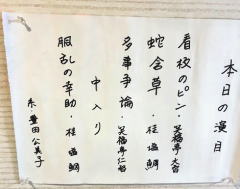 本日の演目
看板のピン・笑福亭大智
蛇含草・桂塩鯛
多事争論・笑福亭仁智
中入り
胴乱の幸助・桂塩鯛
三味線・豊田公美子